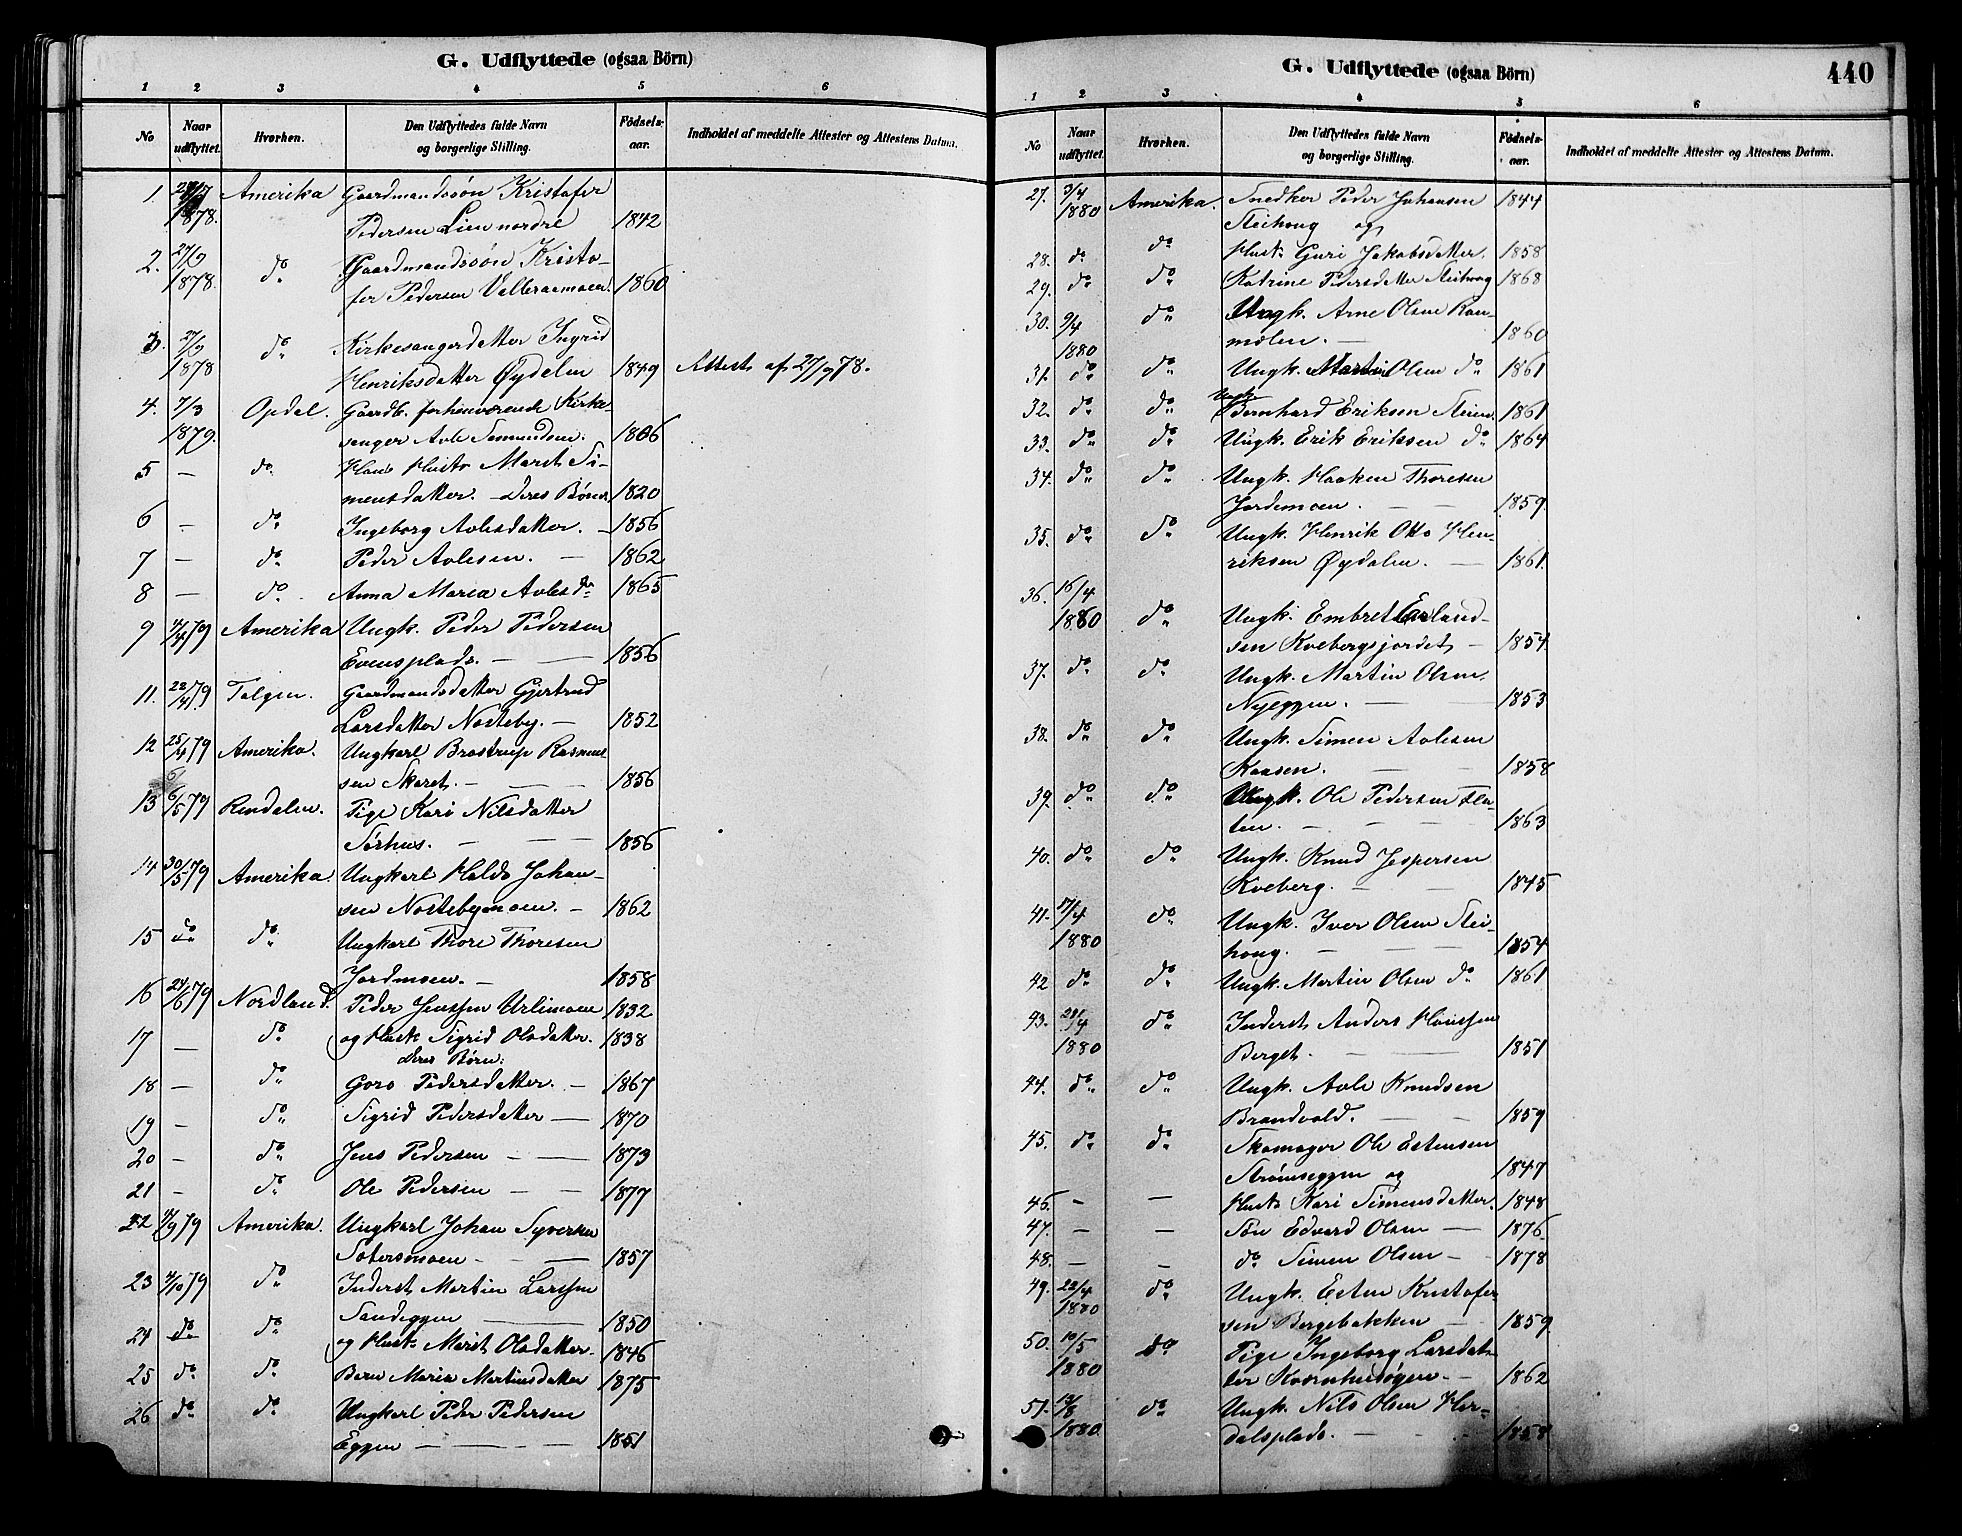 G. Udflyttede (ogsaa Börn)
1 2 3 4 5 6
No Naar udflyttet. Hvorhen. Den Udflyttedes fulde Navn og borgerlige Stilling. Födsels-aar. Indholdet af meddelte Attester og Attestens Datum.
1. 1878. Amerika Gaardmandssøn Kristofer
Pedersen Lien nordre 1842
2. 27/9 1878. do Gaardmandssøn Kristo-
fer Pedersen 1860
3. 27/9 1878 do Kirkesangerdatter Ingrid
Henriksdatter Øydalen 1849 Attest af 27/9 78.
4. 7/3 1879. Opdal. Gaardb. forhenværende Kirke-
sanger Avle Semundsen. 1806
5 — do. Hans Hustr. Marit Si-
mensdatter. — Deres Børn: 1820
6 — do. Ingeborg Avlesdatter. — 1856
7 — do. Peder Avlesen. — 1862
8 — do. Anna Maria Avlesd. 1865
9 79 Amerika Ungk. Peder Pedersen
Evensplads. — — 1856
11. 22/4 79 Tolgen. Gaardmandsdatter Gjertrud
Larsdatter Nosteby. — 1852
12 25/4 79 Amerika. Ungkarl Brostrup Rasmus-
sen Skaret. — — 1856
13 6/5 79 Rendalen. Pige Kari Nilsdatter
Sørhus. — — 1856
14 30/5 79 Amerika. Ungkarl Haldo Johan-
sen Nostebymoen. — 1862
15 do do. Ungkarl Thore Thoresen
Jordmoen. — 1858
16 24/6 79 Nordland. Peder Jenssen Urlimoen 1832
17 — do og Hustr. Sigrid Olsdatter. 1838
deres Børn:
18 — do Goro Pedersdatter. — 1867
19 — do. Sigrid Pedersdatter — 1870
20 — do. Jens Pedersen — — 1873
21 — do. Ole Pedersen — — 1877
22 4/9 79 Amerika. Ungkarl Johan Syversen
Sætersmoen — — 1857
23 4/10 79 do. Inderst Martin Larssen
Sandeggen — 1850
24 do do. og Hustr. Marit Olsdatter. 1846
25 do do. Barn Maria Martinsdatter 1875
26 do do. Ungkarl Peder Pedersen
Eggen — — — 1851
G. Udflyttede (ogsaa Börn) 440
1 2 3 4 5 6
No Naar udflyttet. Hvorhen. Den Udflyttedes fulde Navn og borgerlige Stilling. Födsels-aar. Indholdet af meddelte Attester og Attestens Datum.
27. 3/4 1880 Amerika. Snedker Peder Johansen 1844
Steihoug og
28. do do Hustr. Guri Jakobsdatter. 1858
29. do do Katrine Pedersdatter Steihoug 1868
30. 9/4 1880 do Ungk. Arne Olsen Ran-
mælen. — 1860
31. do. do. Ungk. Martin Olsen do 1861
32. do. do. Ungk. Bernhard Eriksen 1861
33. do. do. Ungk. Erik Eriksen do. 1864
34. do. do. Ungk. Haaken Thoresen
Jordemoen. — — 1859.
35. do. do. Ungk. Henrik Otto Hen-
riksen Øydalen. — 1861.
36. 16/4 1880 do. Ungk. Embret Erland-
sen Kvebergsjordet — 1854.
37. do. do. Ungk. Martin Olsen
Nyeggen. — — 1853
38. do. do. Ungk. Simen Avlesen
Kaasen. — — 1858
39. do. do. Ungk. Ole Pedersen Fla-
ten. — — — 1863
40. do. do. Ungk. Knud Jespersen
Kveberg. — — 1845
41. 17/4 1880 do. Ungk. Iver Olsen Stei-
houg. — — 1854
42 do. do. Ungk. Martin Olsen do. 1861
43. 21/4 1880 do. Inderst Anders Hanssen
Berget. — — 1851
44. do. do. Ungk. Avle Knudsen
Brandvold. — — 1859
45. do. do. Skomager Ole Estensen
Strømseggen og 1847
46. — — Hustr. Kari Simensdatter. 1848
47. — — Søn Edvard Olsen — 1876
48. — — do. Simen Olsen — 1878
49. 22/4 1880 do. Ungk. Esten Kristofer-
sen Bergebakken — 1859.
50. 10/5 1880 do. Pige Ingeborg Larsdat-
ter — 1862
51. 1880. do. Ungk. Nils Olsen Her-
dalsplads. — — 1858